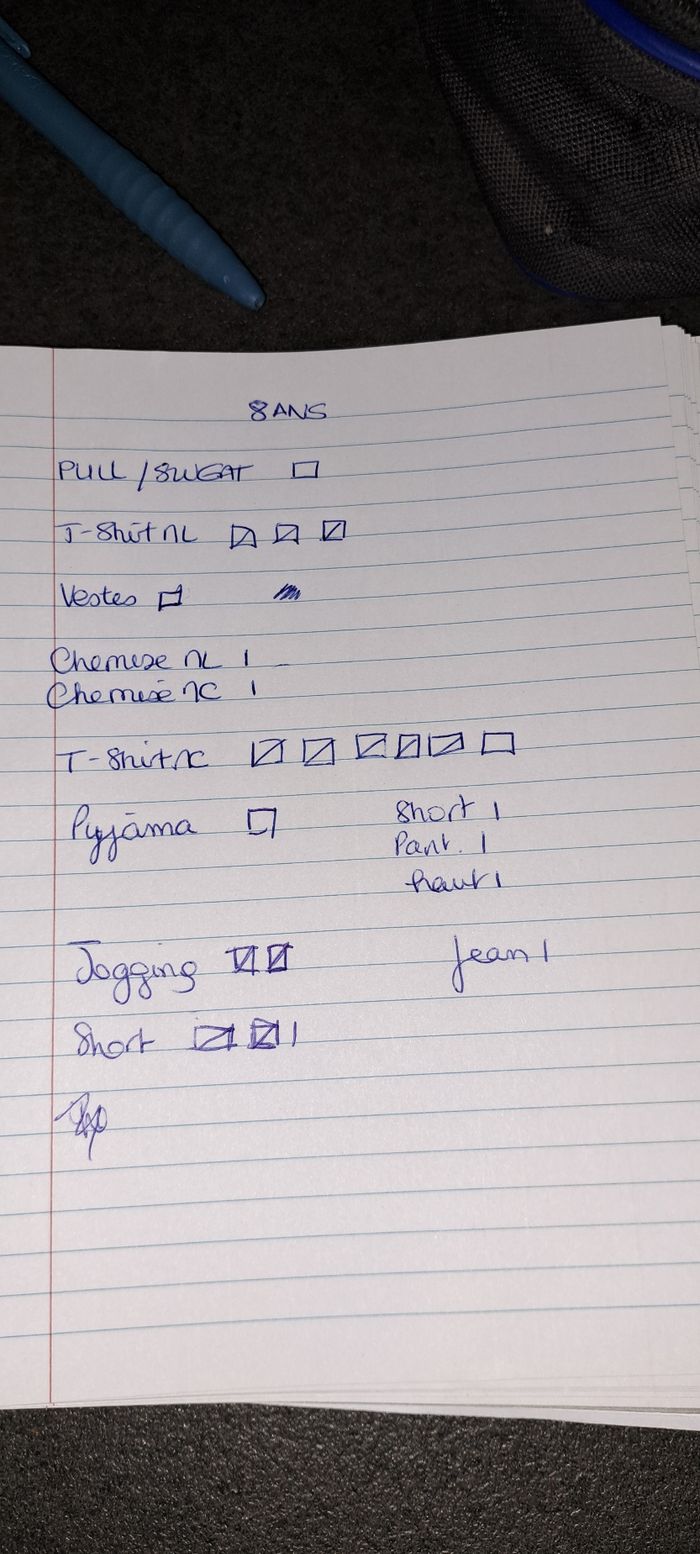 8 ANS
PULL / SWEAT
T-Shirt ML
Vestes
Chemise ML 1
Chemise MC 1
T-Shirt MC
Pyjama
Short 1
Pant. 1
haut 1
Jogging
Jean 1
Short 1